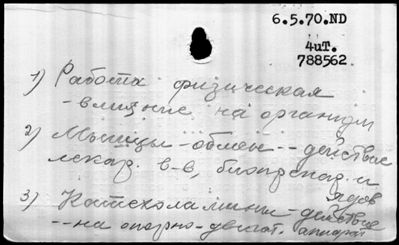 6.5.70.ND
4иТ.
788562
1) Работа физическая
-влияние на организм
2) Мышцы -обмен -- действие
лекар. в-в, биопрепар. и
ядов
3) Катехоламины - действие
-- на опорно-двигат. аппарат